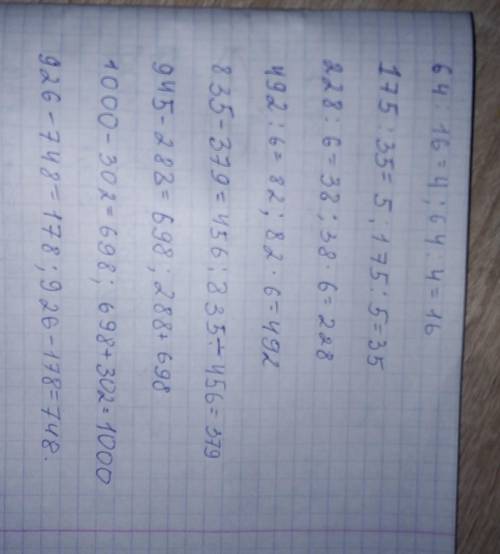 64 : 16 = 4; 64 : 4 = 16
175 : 35 = 5; 175 : 5 = 35
228 : 6 = 38; 38 · 6 = 228
492 : 6 = 82; 82 · 6 = 492
835 - 379 = 456; 835 - 456 = 379
945 - 283 = 698; 288 + 698
1000 - 302 = 698; 698 + 302 = 1000
926 - 748 = 178; 926 - 178 = 748.